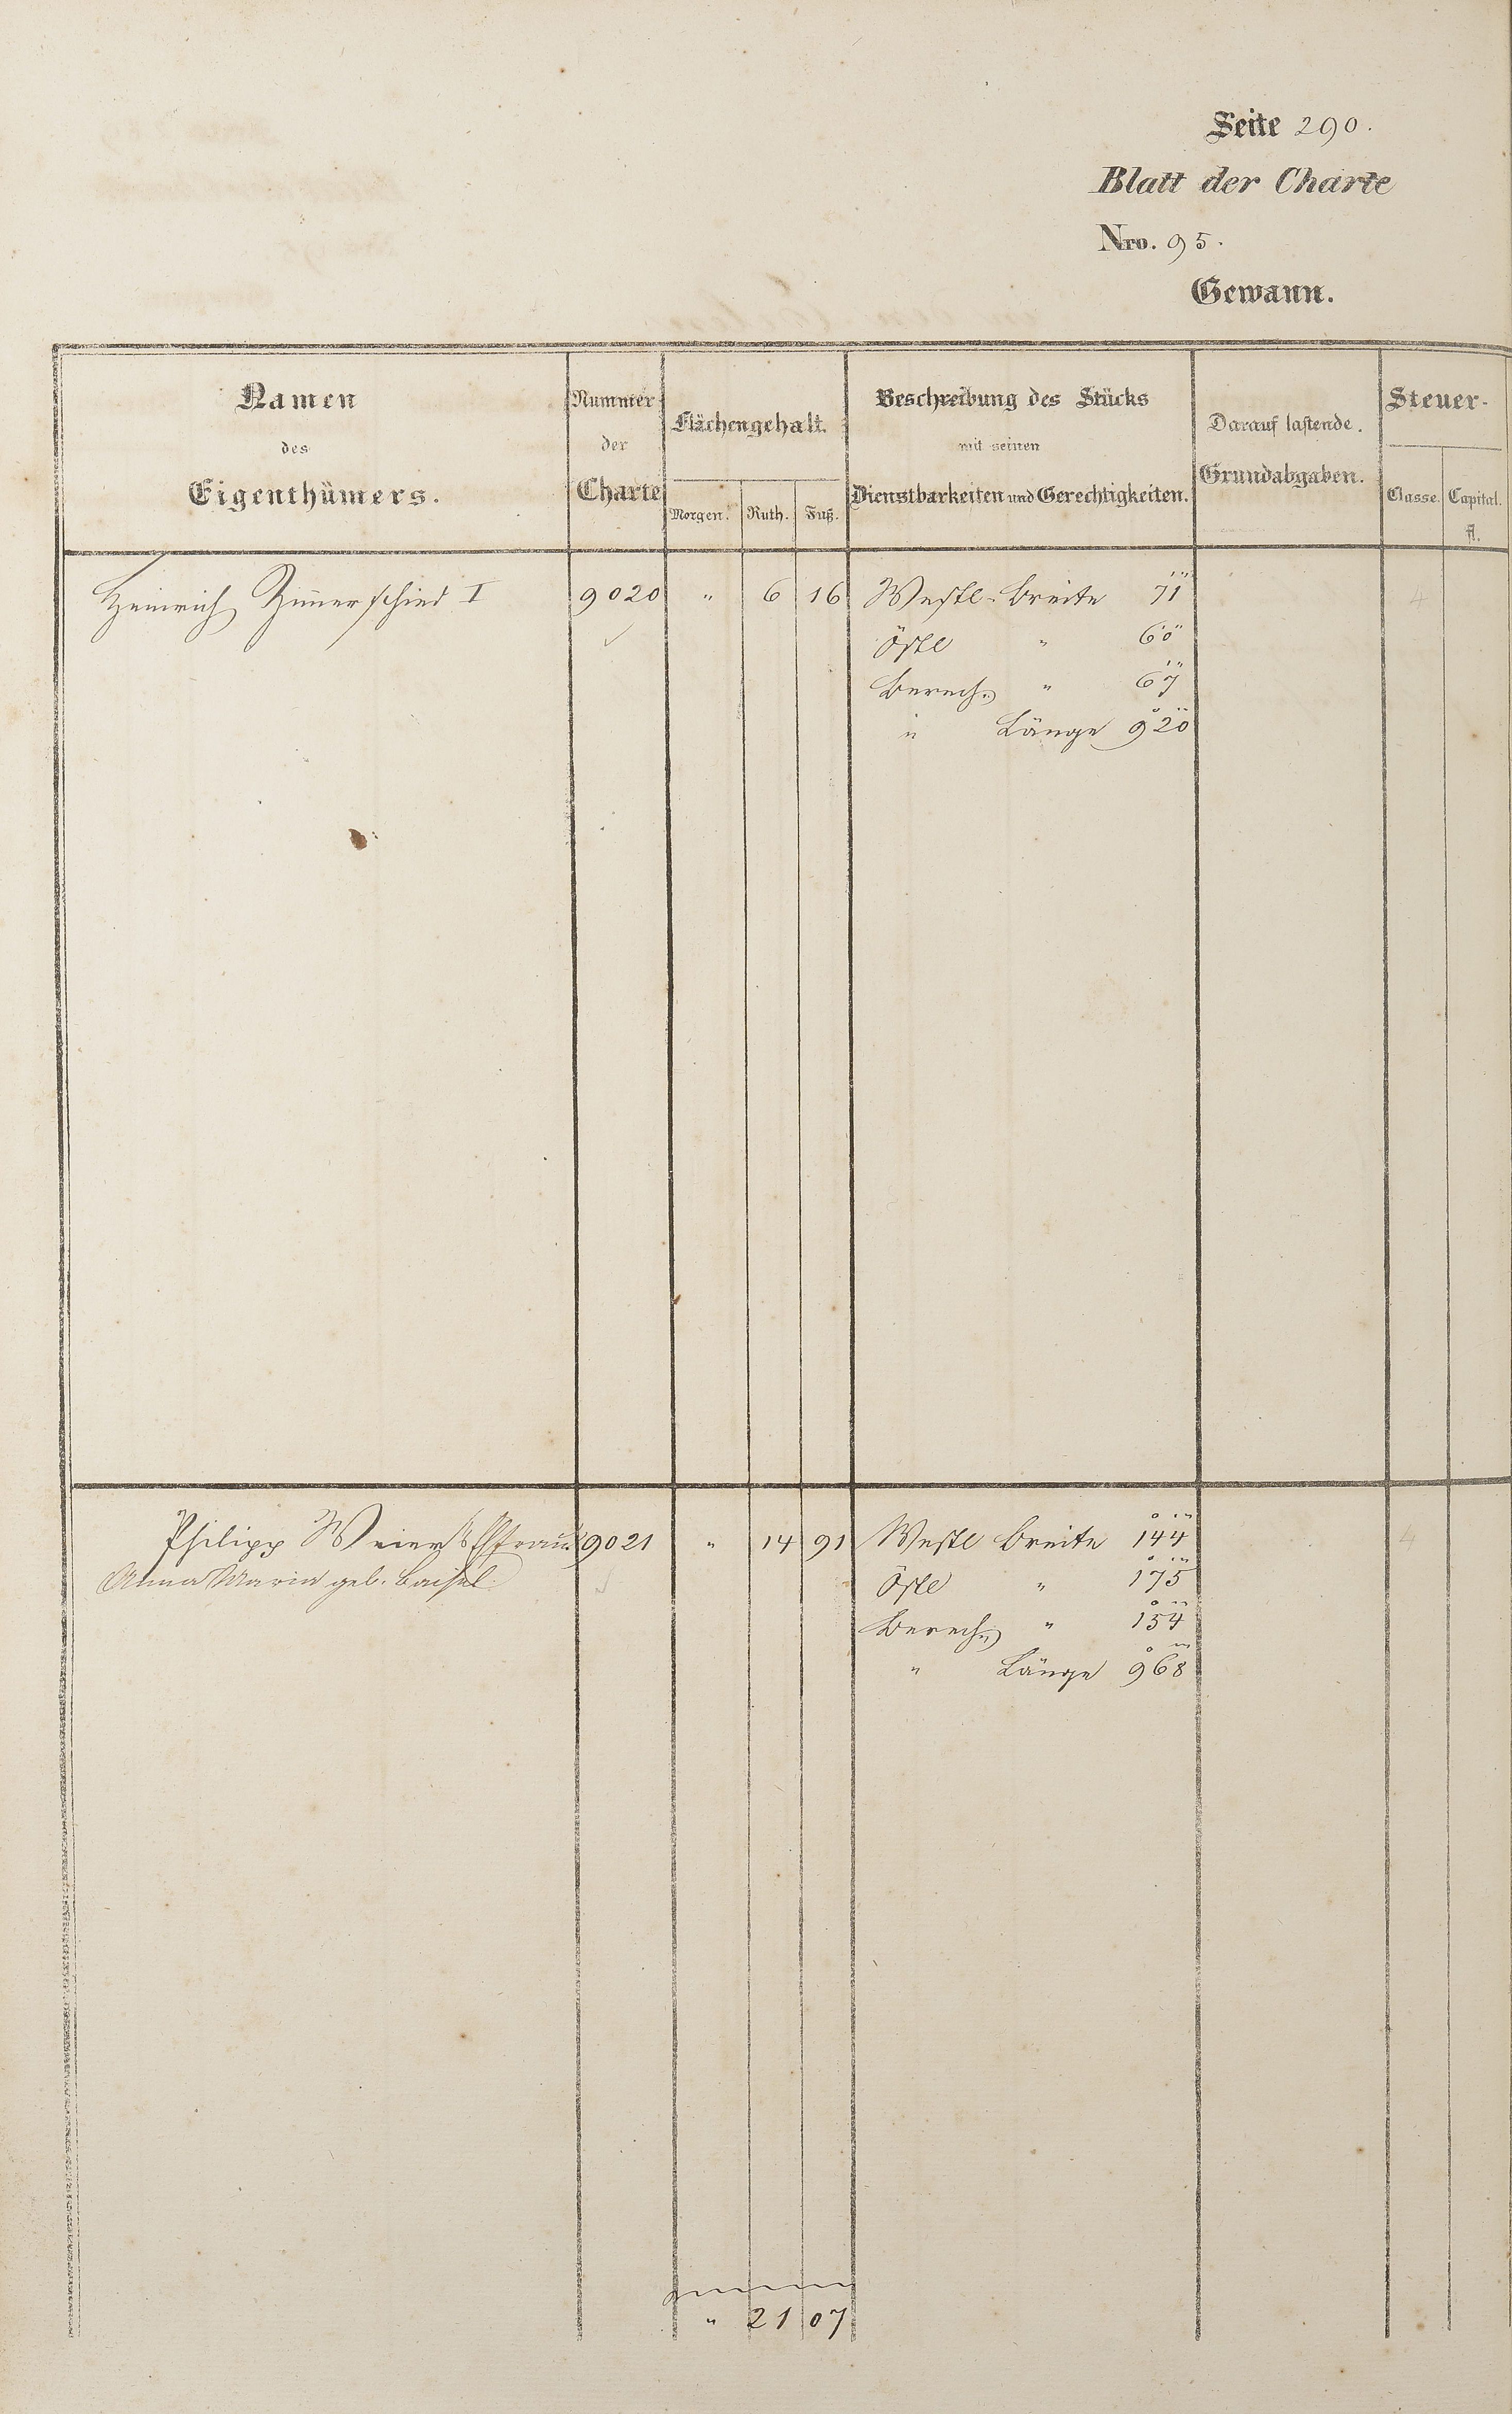 Seite 290.
Blatt der Charte
Nro. 95.
Gewann.
Namen des Eigenthümers.
Nummer der Charte
Flächengehalt.
Morgen. Ruth. Fuß.
Beschreibung des Stücks mit seinen Dienstbarkeiten und Gerechtigkeiten.
Darauf lastende Grundabgaben.
Steuer-
Classe. Capital. fl.
Heinrich Zim̄erschied I 9020 " 6 16 Westl. Breite 71 4
Östl " 60
Berech. " 67
" Länge 920
Philipp Weier's Ehefrau 9021 " 14 91 Westl Breite 144 4
Anna Maria geb. Östl " 175
Berech. " 154
" Länge 968
" 21 07